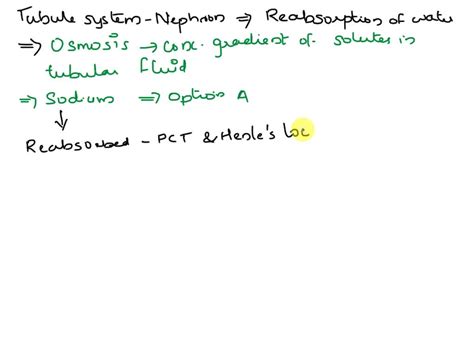 Tubule system - Nephron ⇒ Reabsorption of wate
⇒ Osmosis → conc. gradient of solutes in
tubular fluid
⇒ Sodium ⇒ Option A
↓
Reabsorbed - PCT & Henle's loo